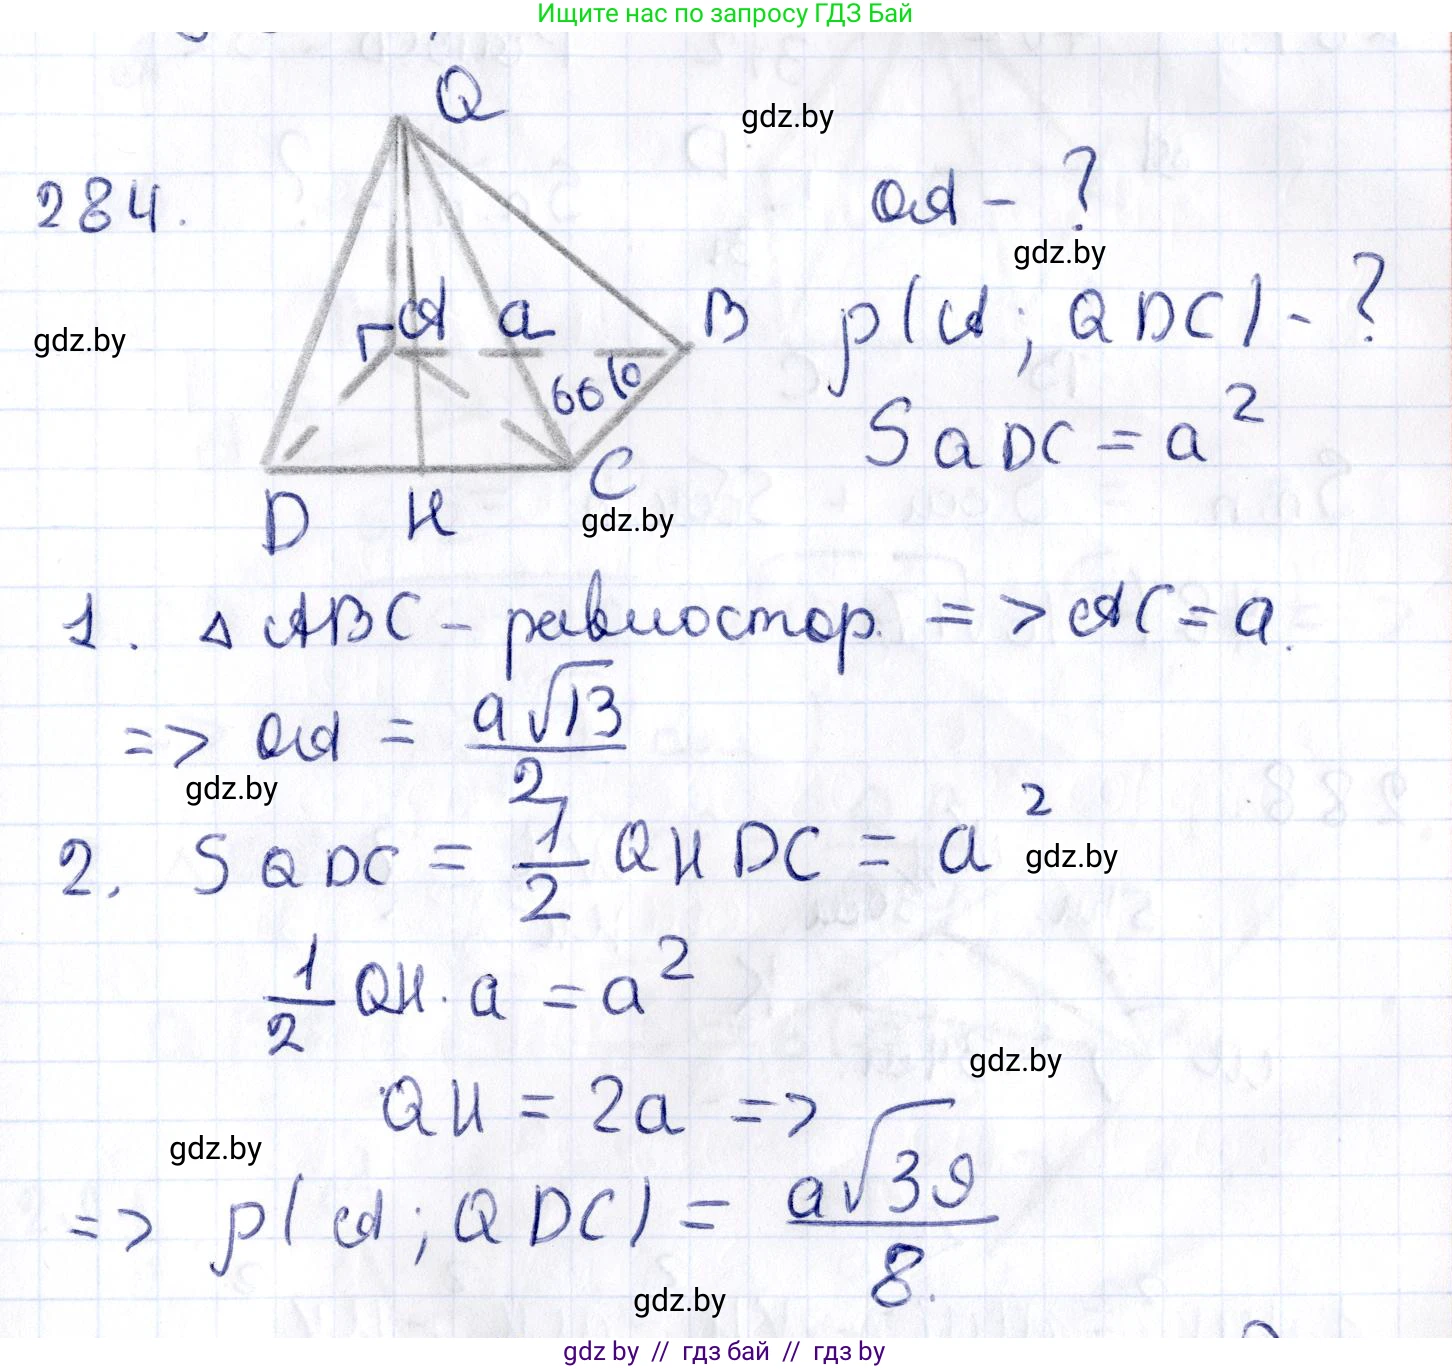 Ищите нас по запросу ГДЗ Бай
Q
gdz.by
284.
QA - ?
gdz.by
A a B
ρ(A; QDC) - ?
gdz.by
60°
S QDC = a²
C
D H
gdz.by
1. △ ABC - равностор. => AC = a.
=> QA = a√13 / 2
gdz.by
2. S QDC = 1/2 QH DC = a²
gdz.by
1/2 QH · a = a²
gdz.by
QH = 2a =>
gdz.by
=> ρ(A; QDC) = a√39 / 8.
gdz.by
gdz by // гдз бай // gdz by